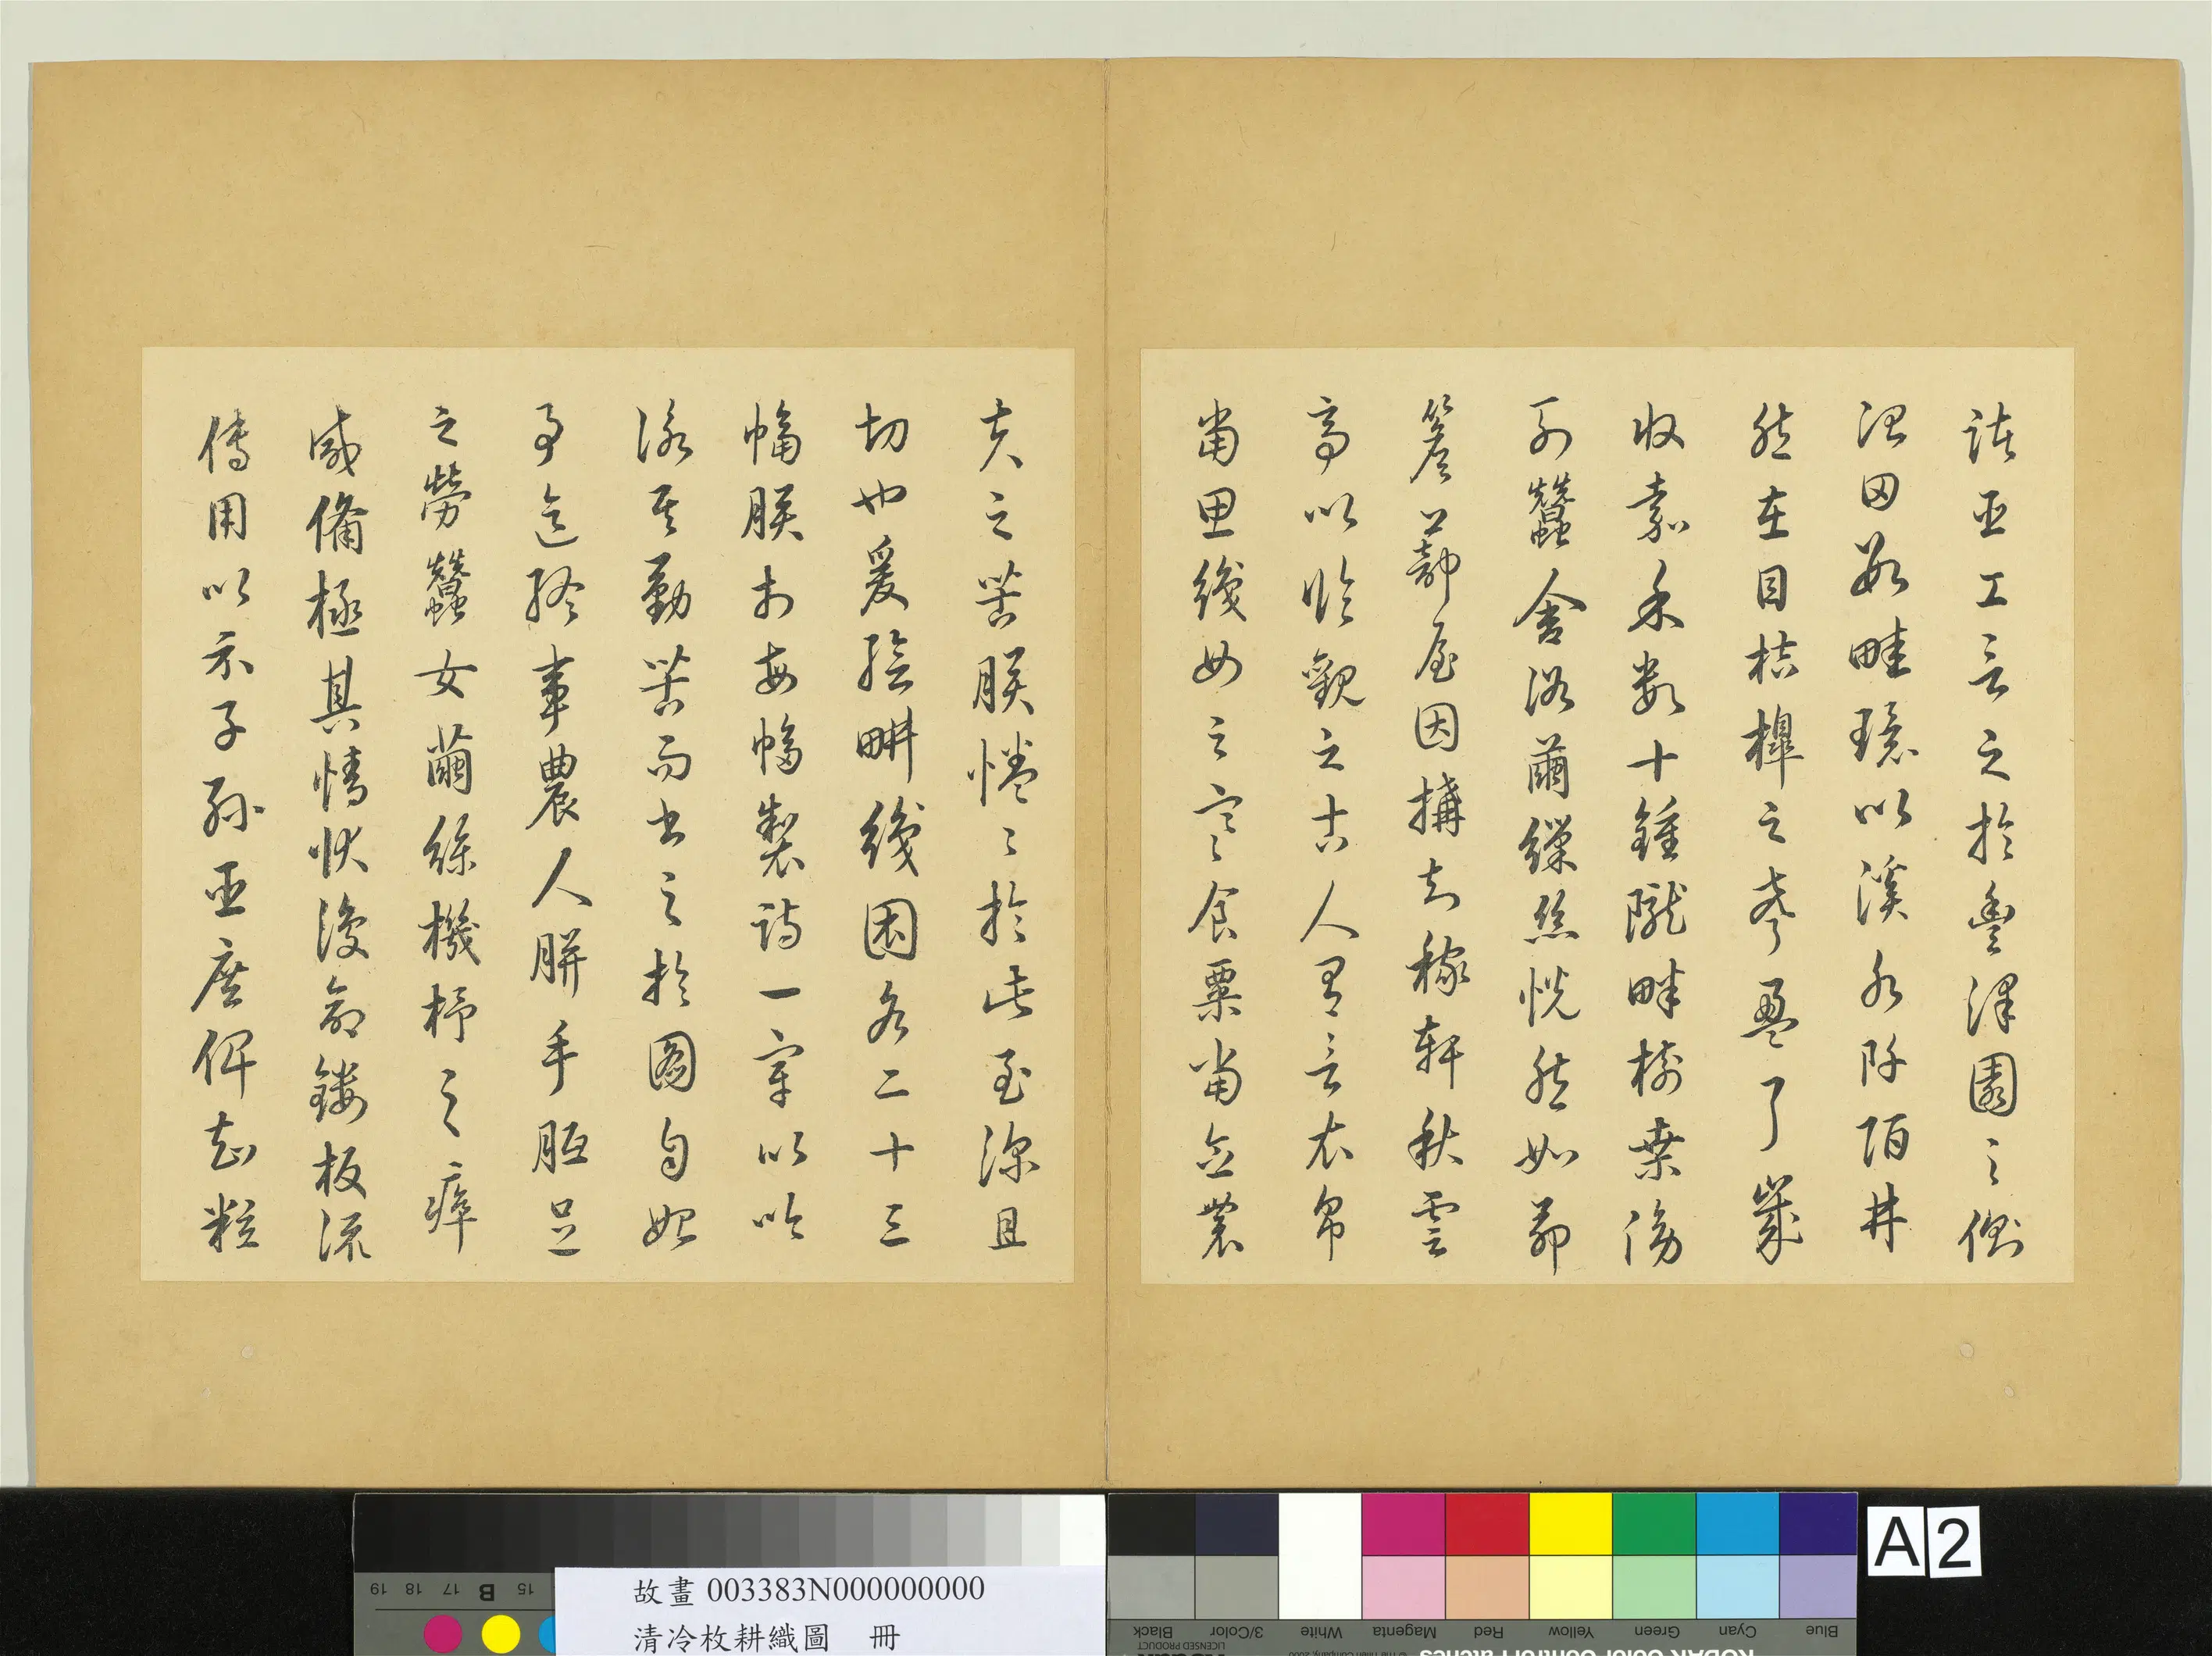 諸臣工言之於豐澤園之側
治田數畦環以溪水阡陌井
然在目桔槔之聲盈耳歲
收嘉禾數十鍾隴畔樹桑傍
列蠶舍浴繭繅絲恍然如茆
簷蔀屋因搆知稼軒秋雲
亭以臨觀之古人有言衣帛
當思織女之寒食粟當念農
夫之苦朕惓〻於此至深且
切也爰繪畊織圖各二十三
幅朕於每幅製詩一章以吟
詠其勤苦而書之於圖自始
事迄終事農人胼手胝足
之勞蠶女繭絲機杼之瘁
咸備極其情狀復命鏤板流
傳用以示子孫臣庶俾知粒
故畫 003383N000000000
清冷枚耕織圖 冊
A 2
Blue Cyan Green Yellow Red Magenta White 3/Color Black
B
15 17 18 19